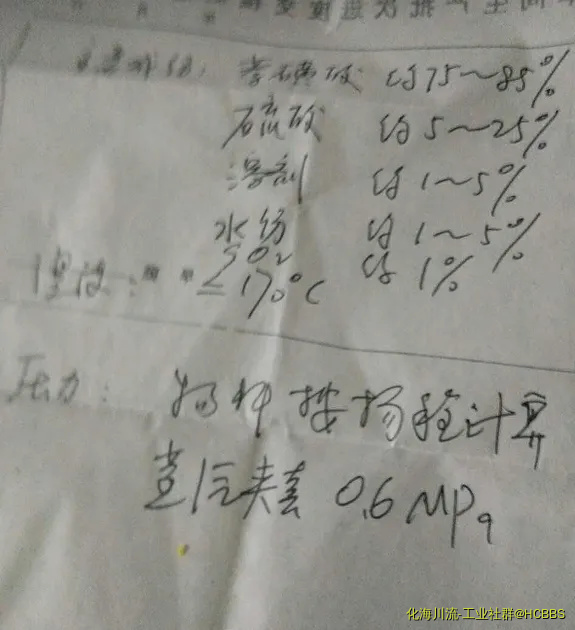 苯磺酸 约75~85%
硫酸 约5~25%
溶剂 约1~5%
水份 约1~5%
SO₂ 约1%
温度: ≤170℃
压力: 物料按扬程计算
蒸汽夹套 0.6MPa
化海川流-工业社群@HCBBS